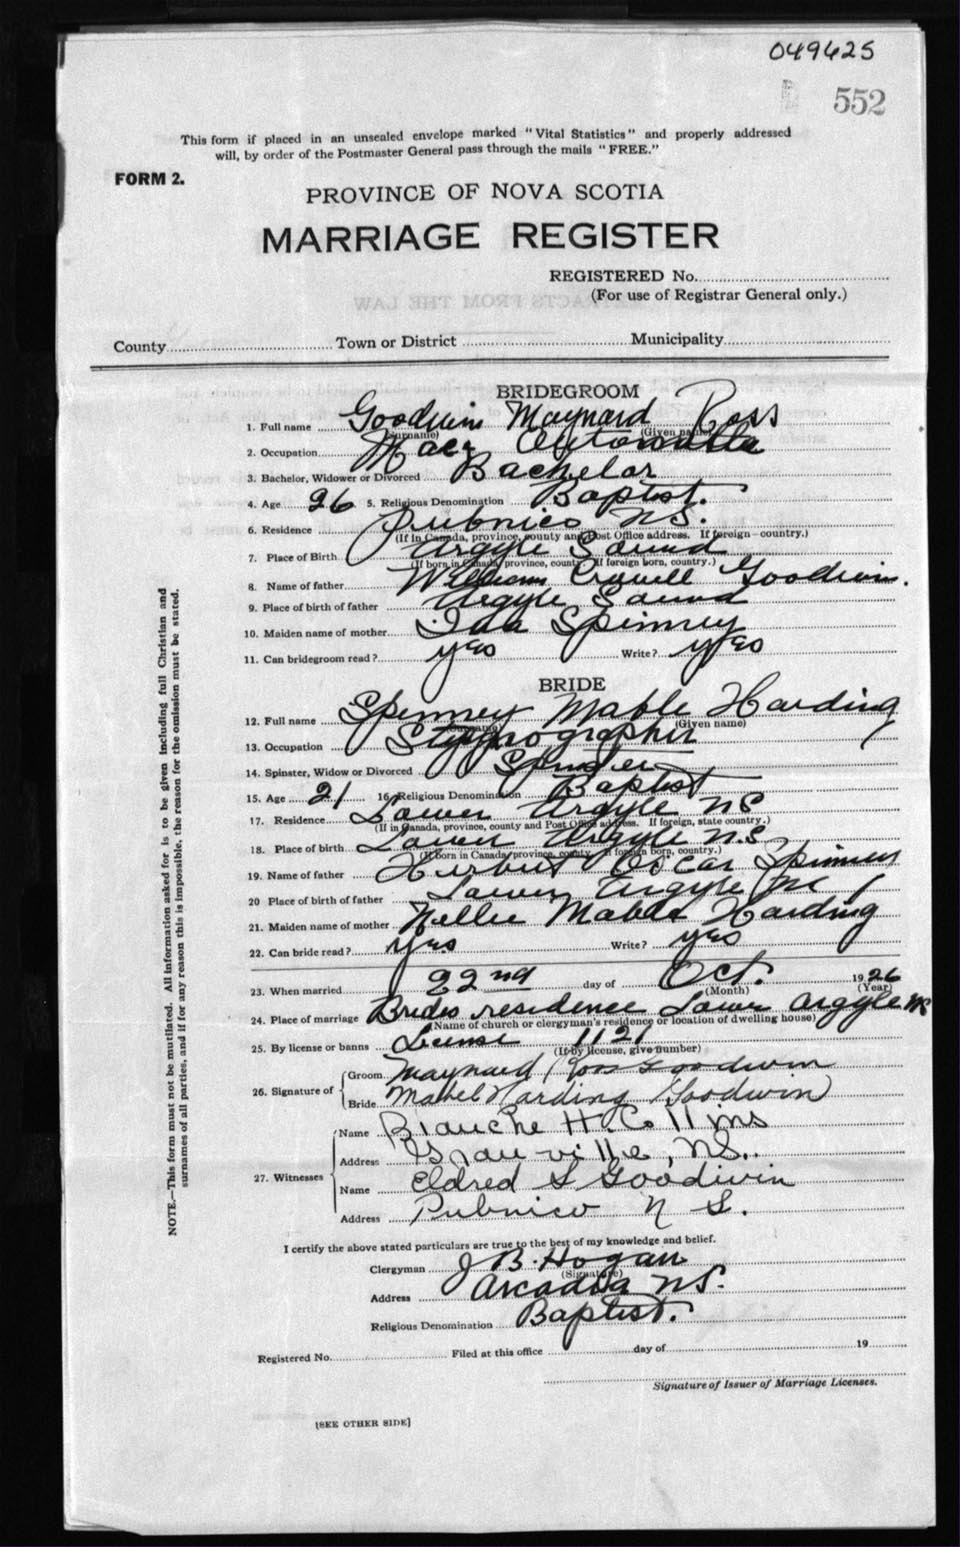 049625
552
This form if placed in an unsealed envelope marked "Vital Statistics" and properly addressed
will, by order of the Postmaster General pass through the mails "FREE."
FORM 2.
PROVINCE OF NOVA SCOTIA
MARRIAGE REGISTER
REGISTERED No.
(For use of Registrar General only.)
County Town or District Municipality
BRIDEGROOM
1. Full name Goodwin Maynard Ross
(Surname) (Given name)
2. Occupation
3. Bachelor, Widower or Divorced Bachelor
4. Age 26 5. Religious Denomination Baptist.
6. Residence Pubnico N.S.
(If in Canada, province, county and Post Office address. If foreign—country.)
7. Place of Birth Argyle Sound
(If born in Canada, province, county. If foreign born, country.)
8. Name of father William Crowell Goodwin.
9. Place of birth of father Argyle Sound
10. Maiden name of mother Ida Spinney
11. Can bridegroom read? yes Write? yes
BRIDE
12. Full name Spinney Mable Harding
(Surname) (Given name)
13. Occupation Stenographer
14. Spinster, Widow or Divorced Spinster
15. Age 21 16. Religious Denomination Baptist
17. Residence Lower Argyle NS
(If in Canada, province, county and Post Office address. If foreign, state country.)
18. Place of birth Lower Argyle N.S
(If born in Canada, province, county. If foreign born, country.)
19. Name of father Herbert Oscar Spinney
20 Place of birth of father Lower Argyle NS
21. Maiden name of mother Nellie Mabel Harding
22. Can bride read? yes Write? yes
23. When married 22nd day of Oct. 1926
(Month) (Year)
24. Place of marriage Brides residence Lower Argyle NS
(Name of church or clergyman's residence or location of dwelling house)
25. By license or banns License 1121
(If by license, give number)
26. Signature of Groom Maynard Ross Goodwin
Bride Mabel Harding Goodwin
27. Witnesses Name Blanche H. Collins
Address N.S.
Name Eldred S Goodwin
Address Pubnico N S.
I certify the above stated particulars are true to the best of my knowledge and belief.
Clergyman J B. Hogan
(Signature)
Address Arcadia NS.
Religious Denomination Baptist.
Registered No. Filed at this office day of 19
Signature of Issuer of Marriage Licenses.
[SEE OTHER SIDE]
NOTE.—This form must not be mutilated. All information asked for is to be given including full Christian and
surnames of all parties, and if for any reason this is impossible, the reason for the omission must be stated.